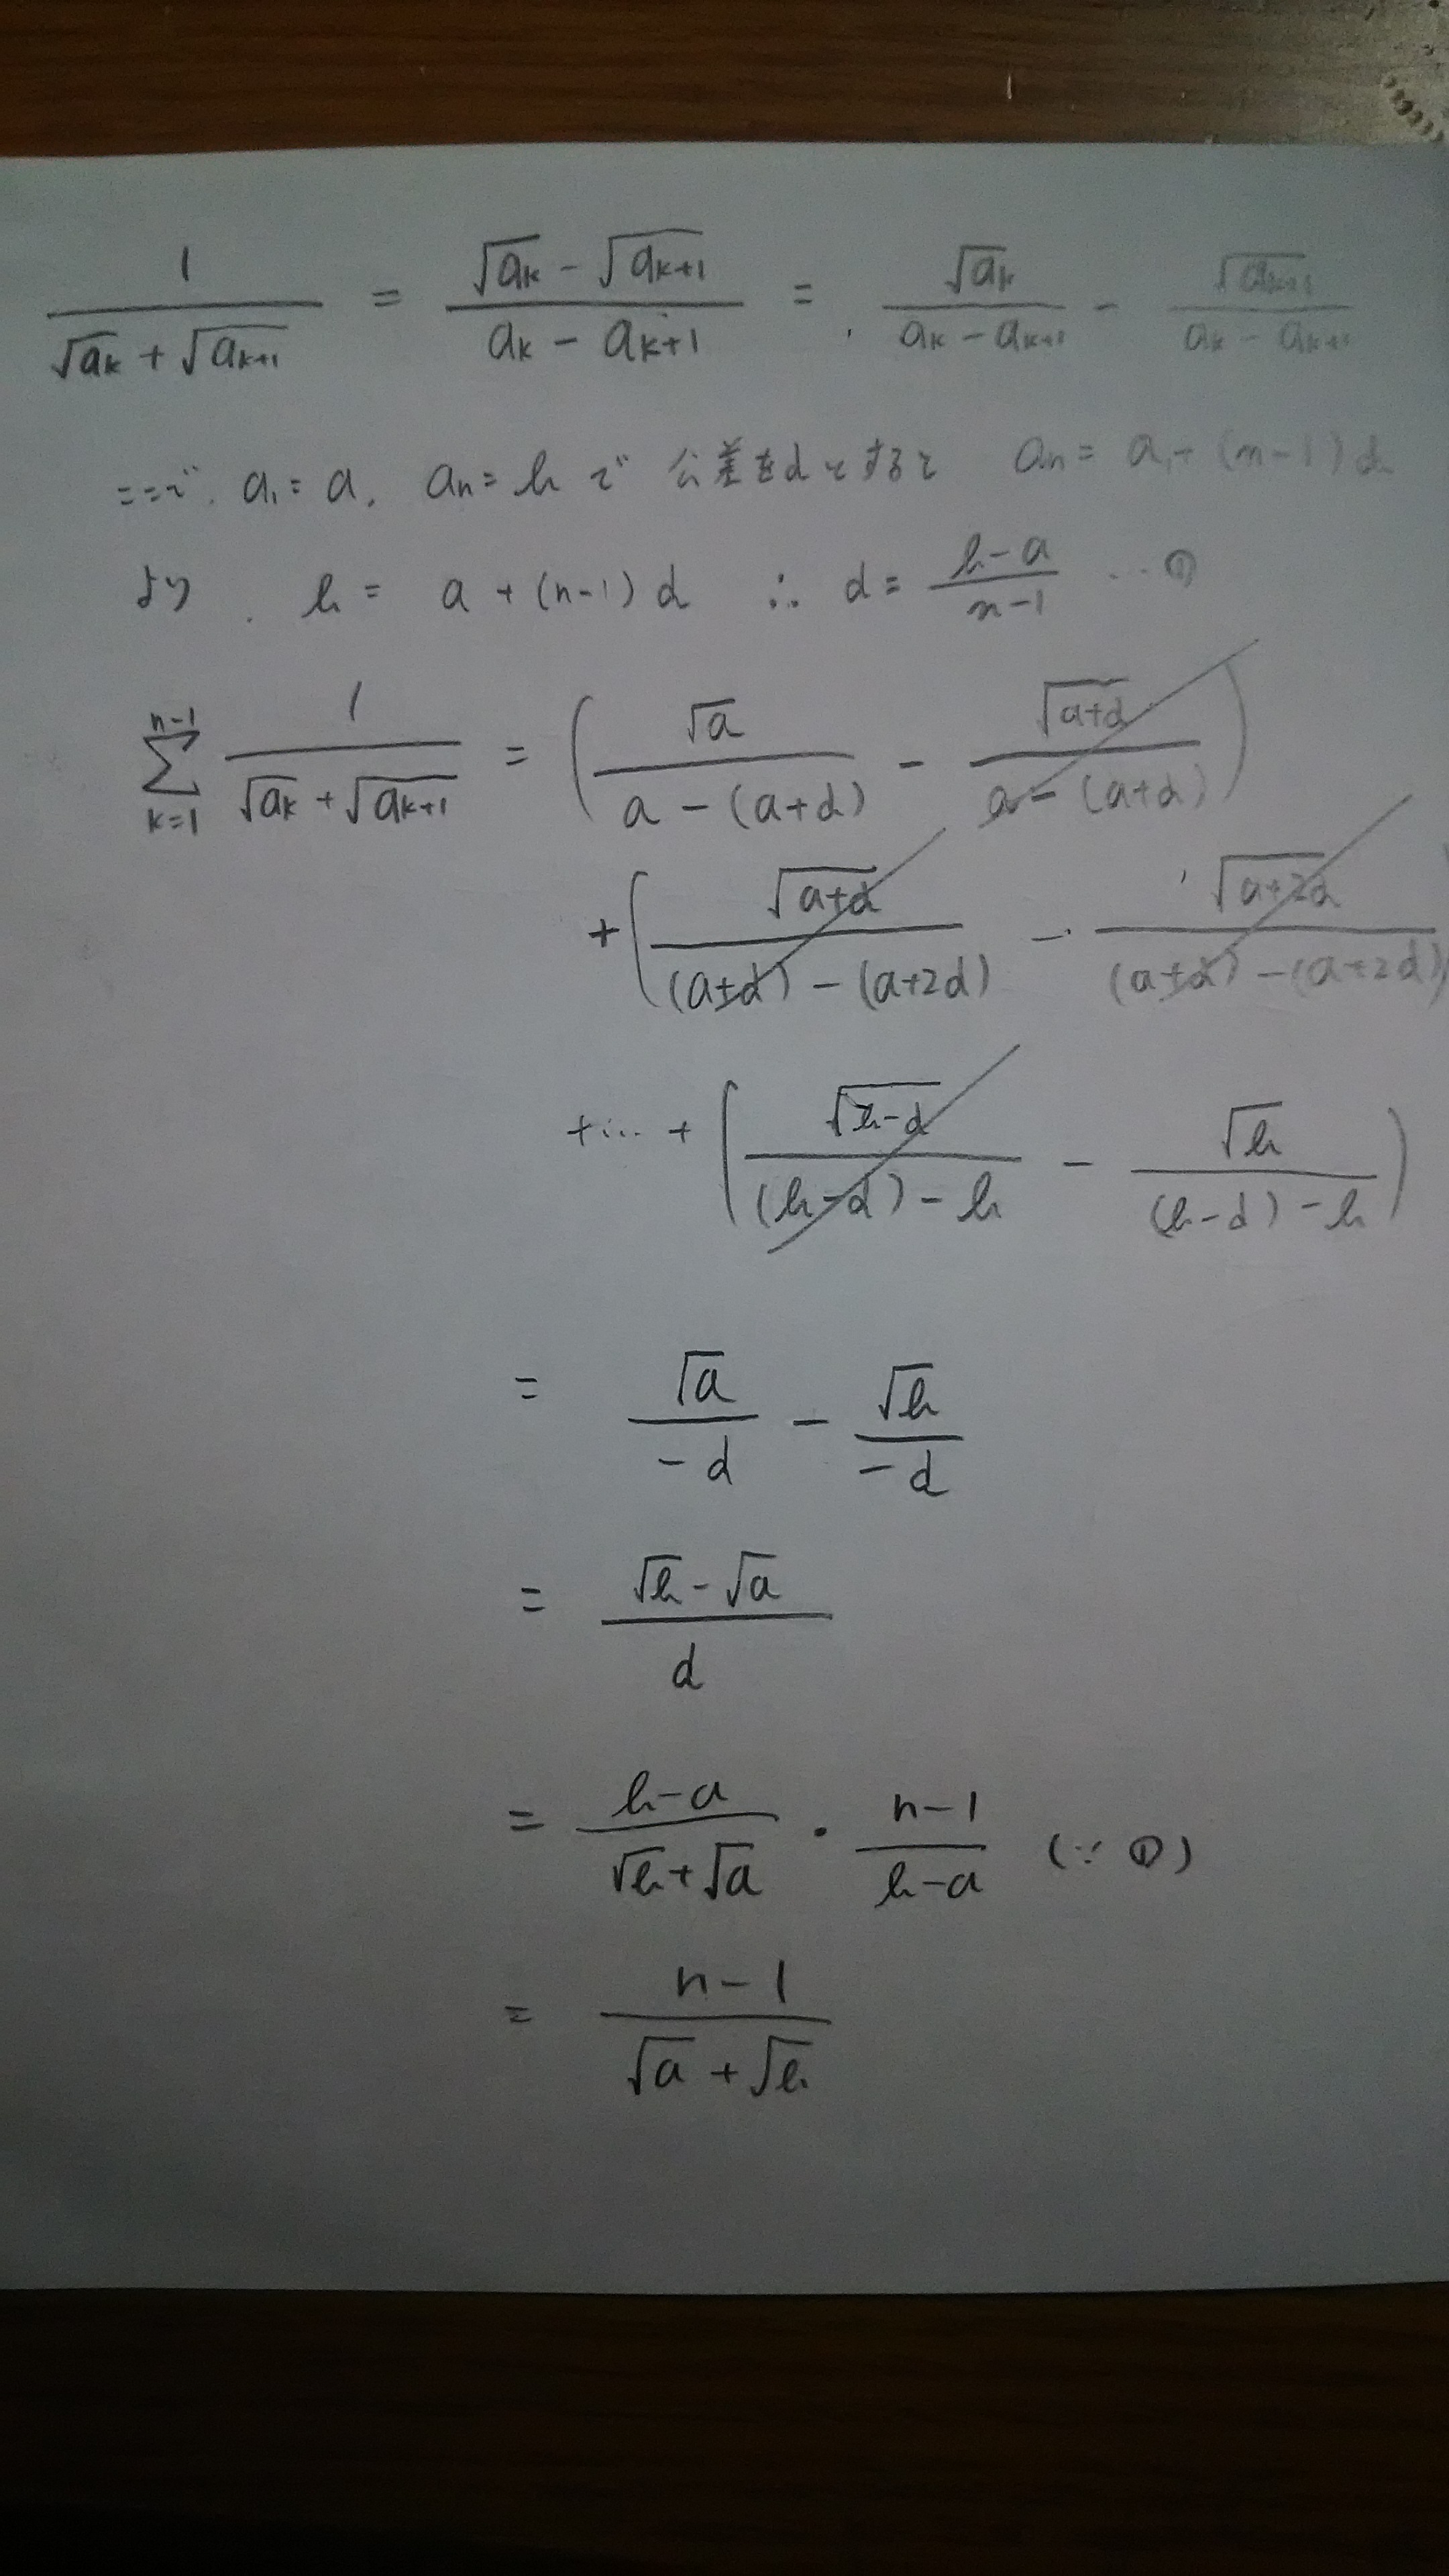 1/(√a_k + √a_{k+1}) = (√a_k - √a_{k+1})/(a_k - a_{k+1}) = √a_k/(a_k - a_{k+1}) - √a_{k+1}/(a_k - a_{k+1})
ここで、a₁ = a, aₙ = b で 公差をdとすると aₙ = a₁ + (n-1)d
より、b = a + (n-1)d ∴ d = (b-a)/(n-1) … ①
Σ_{k=1}^{n-1} 1/(√a_k + √a_{k+1}) = (√a/(a - (a+d)) - √(a+d)/(a - (a+d)))
+ (√(a+d)/((a+d) - (a+2d)) - √(a+2d)/((a+d) - (a+2d)))
+ … + (√(b-d)/((b-d) - b) - √b/((b-d) - b))
= √a/(-d) - √b/(-d)
= (√b - √a)/d
= (b-a)/(√b + √a) · (n-1)/(b-a) (∵ ①)
= (n-1)/(√a + √b)